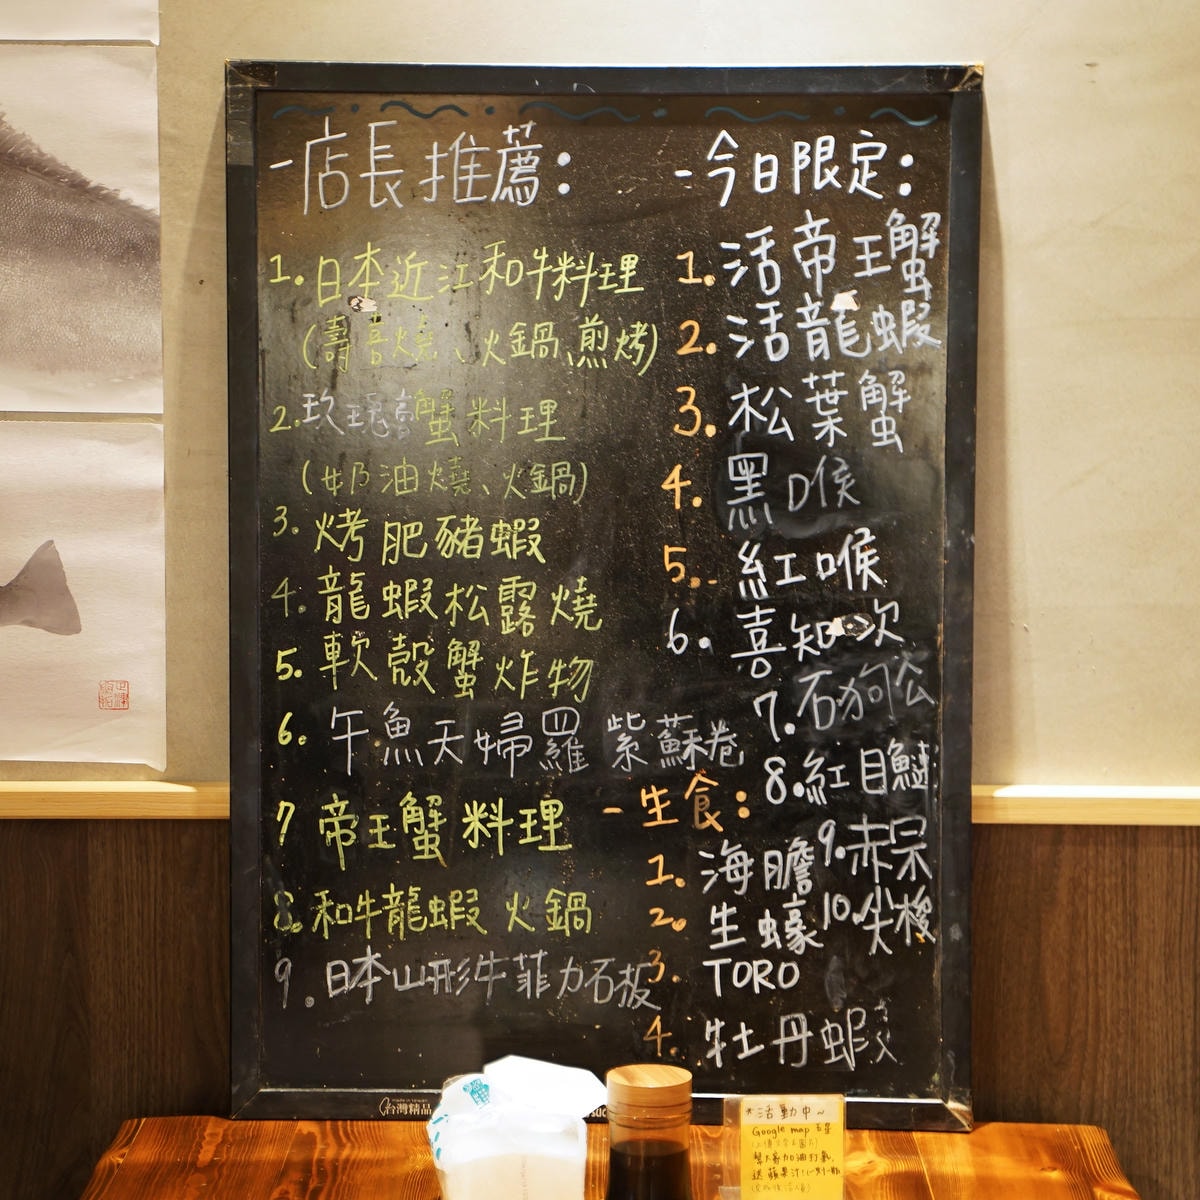 -店長推薦:
1.日本近江和牛料理
(壽喜燒、火鍋、煎烤)
2.玫瑰膏蟹料理
(牛奶油燒、火鍋)
3.烤肥豬蝦
4.龍蝦松露燒
5.軟殼蟹炸物
6.午魚天婦羅 紫蘇卷
7 帝王蟹料理
8.和牛龍蝦 火鍋
9.日本山形牛菲力石板
-今日限定:
1.活帝王蟹
2.活龍蝦
3.松葉蟹
4.黑口喉
5.紅喉
6.喜知次
7.石狗公
8.紅目鰱
9.赤呆
10.尖梭
-生食:
1.海膽
2.生蠔
3.TORO
4.牡丹蝦
made in taiwan
台灣精品
*活動中~
Google map 五星
幫大哥加油打氣,
送蘋果汁!